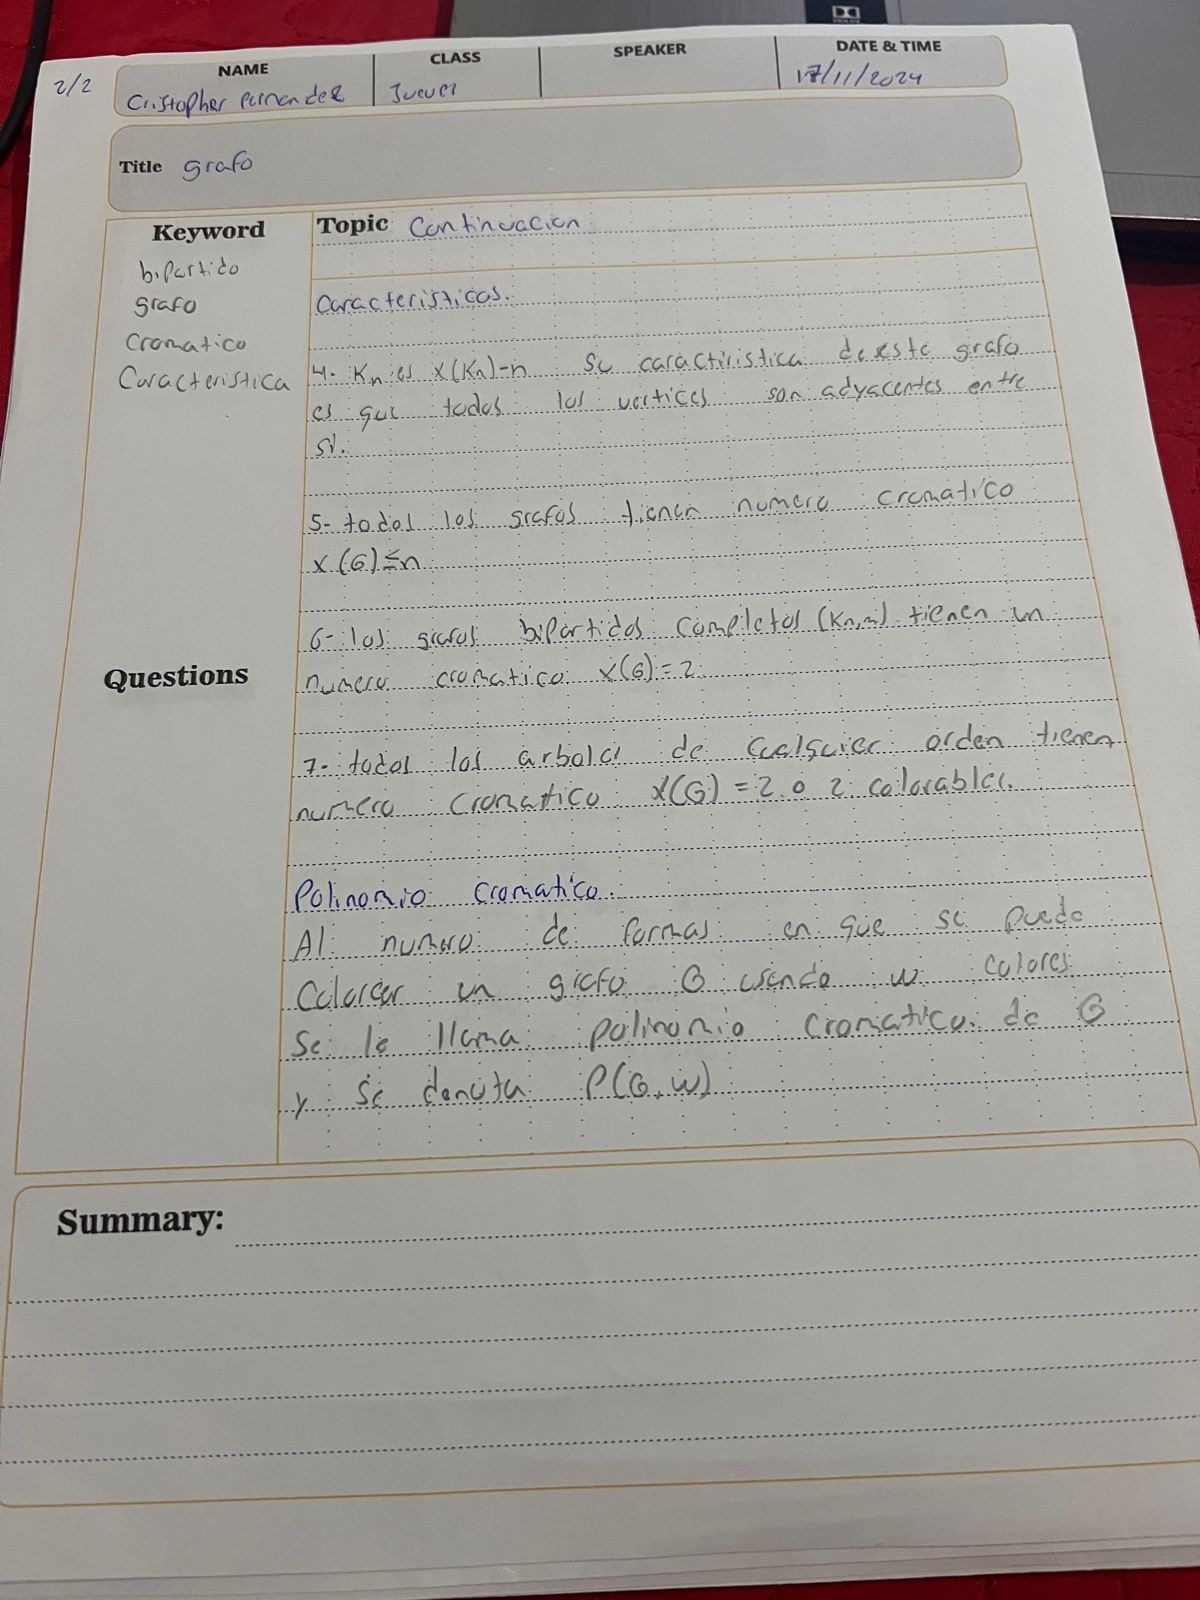 2/2
NAME
CLASS
SPEAKER
DATE & TIME
Cristopher Fernandez
Jueves
17/11/2024
Title grafo
Keyword
bipartido
grafo
Cromatico
Caracteristica
Questions
Topic Continuacion
Caracteristicas.
4- Kn es X(Kn)=n Su caractiristica de este grafo
es que todos los vertices son adyacentes entre
si.
5- todos los grafos tienen numero cromatico
X(G)≤n
6- los grafos bipartidos completos (Kn,m) tienen un
numero cromatico X(G)=2
7- todos los arboles de cualquier orden tienen
numero cromatico X(G)=2 o 2 colorables.
Polinomio cromatico.
Al numero de formas en que se puede
Colorear un grafo G usando w colores
Se le llama polinomio cromatico de G
y se denota P(G,w)
Summary: